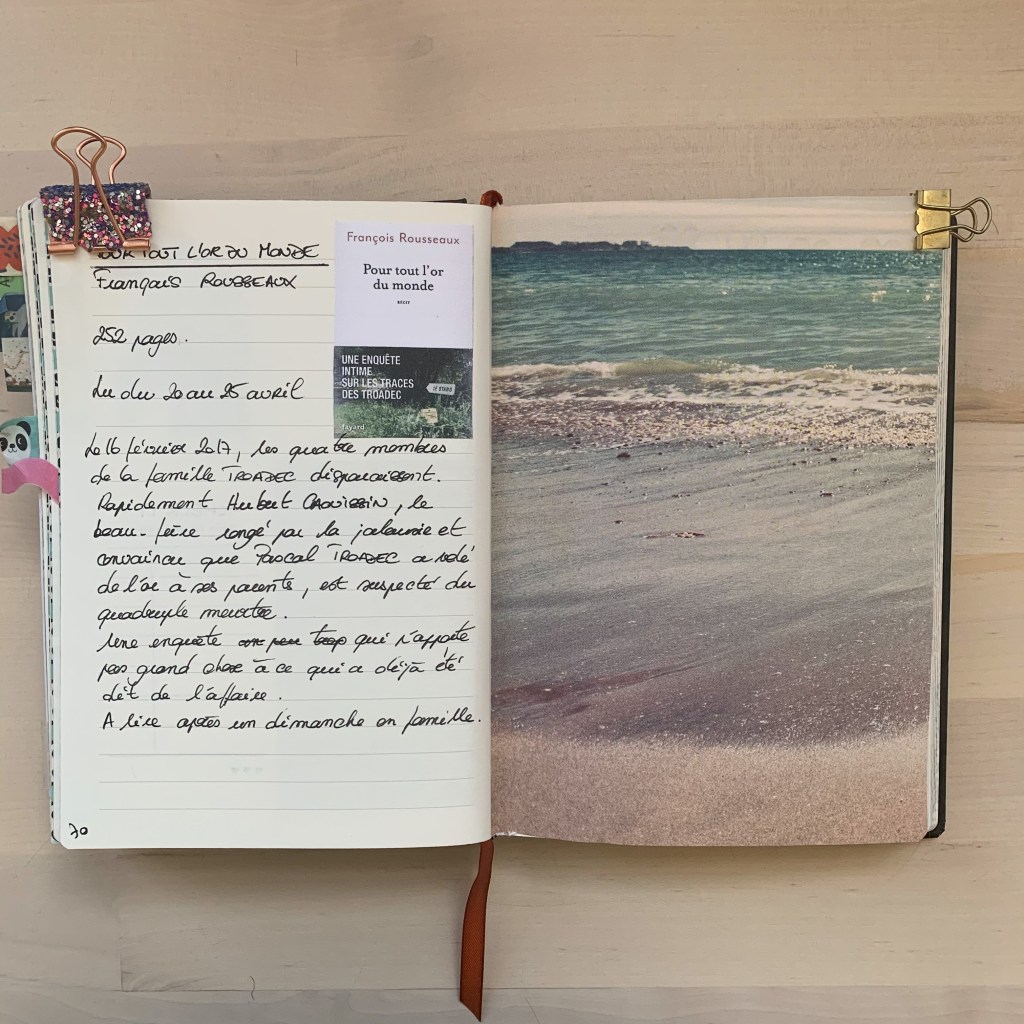 POUR TOUT L'OR DU MONDE
François ROUSSEAUX
252 pages.
Lu du 20 au 25 avril
François Rousseaux
Pour tout l'or
du monde
RÉCIT
UNE ENQUÊTE
INTIME
SUR LES TRACES
DES TROADEC
fayard
Le 16 février 2017, les quatre membres
de la famille TROADEC disparaissent.
Rapidement Hubert CAOUISSIN, le
beau-frère rongé par la jalousie et
convaincu que Pascal TROADEC a volé
de l'or à ses parents, est suspecté du
quadruple meurtre.
Une enquête un peu trop qui n'apporte
pas grand chose à ce qui a déjà été
dit de l'affaire.
A lire après un dimanche en famille.
70